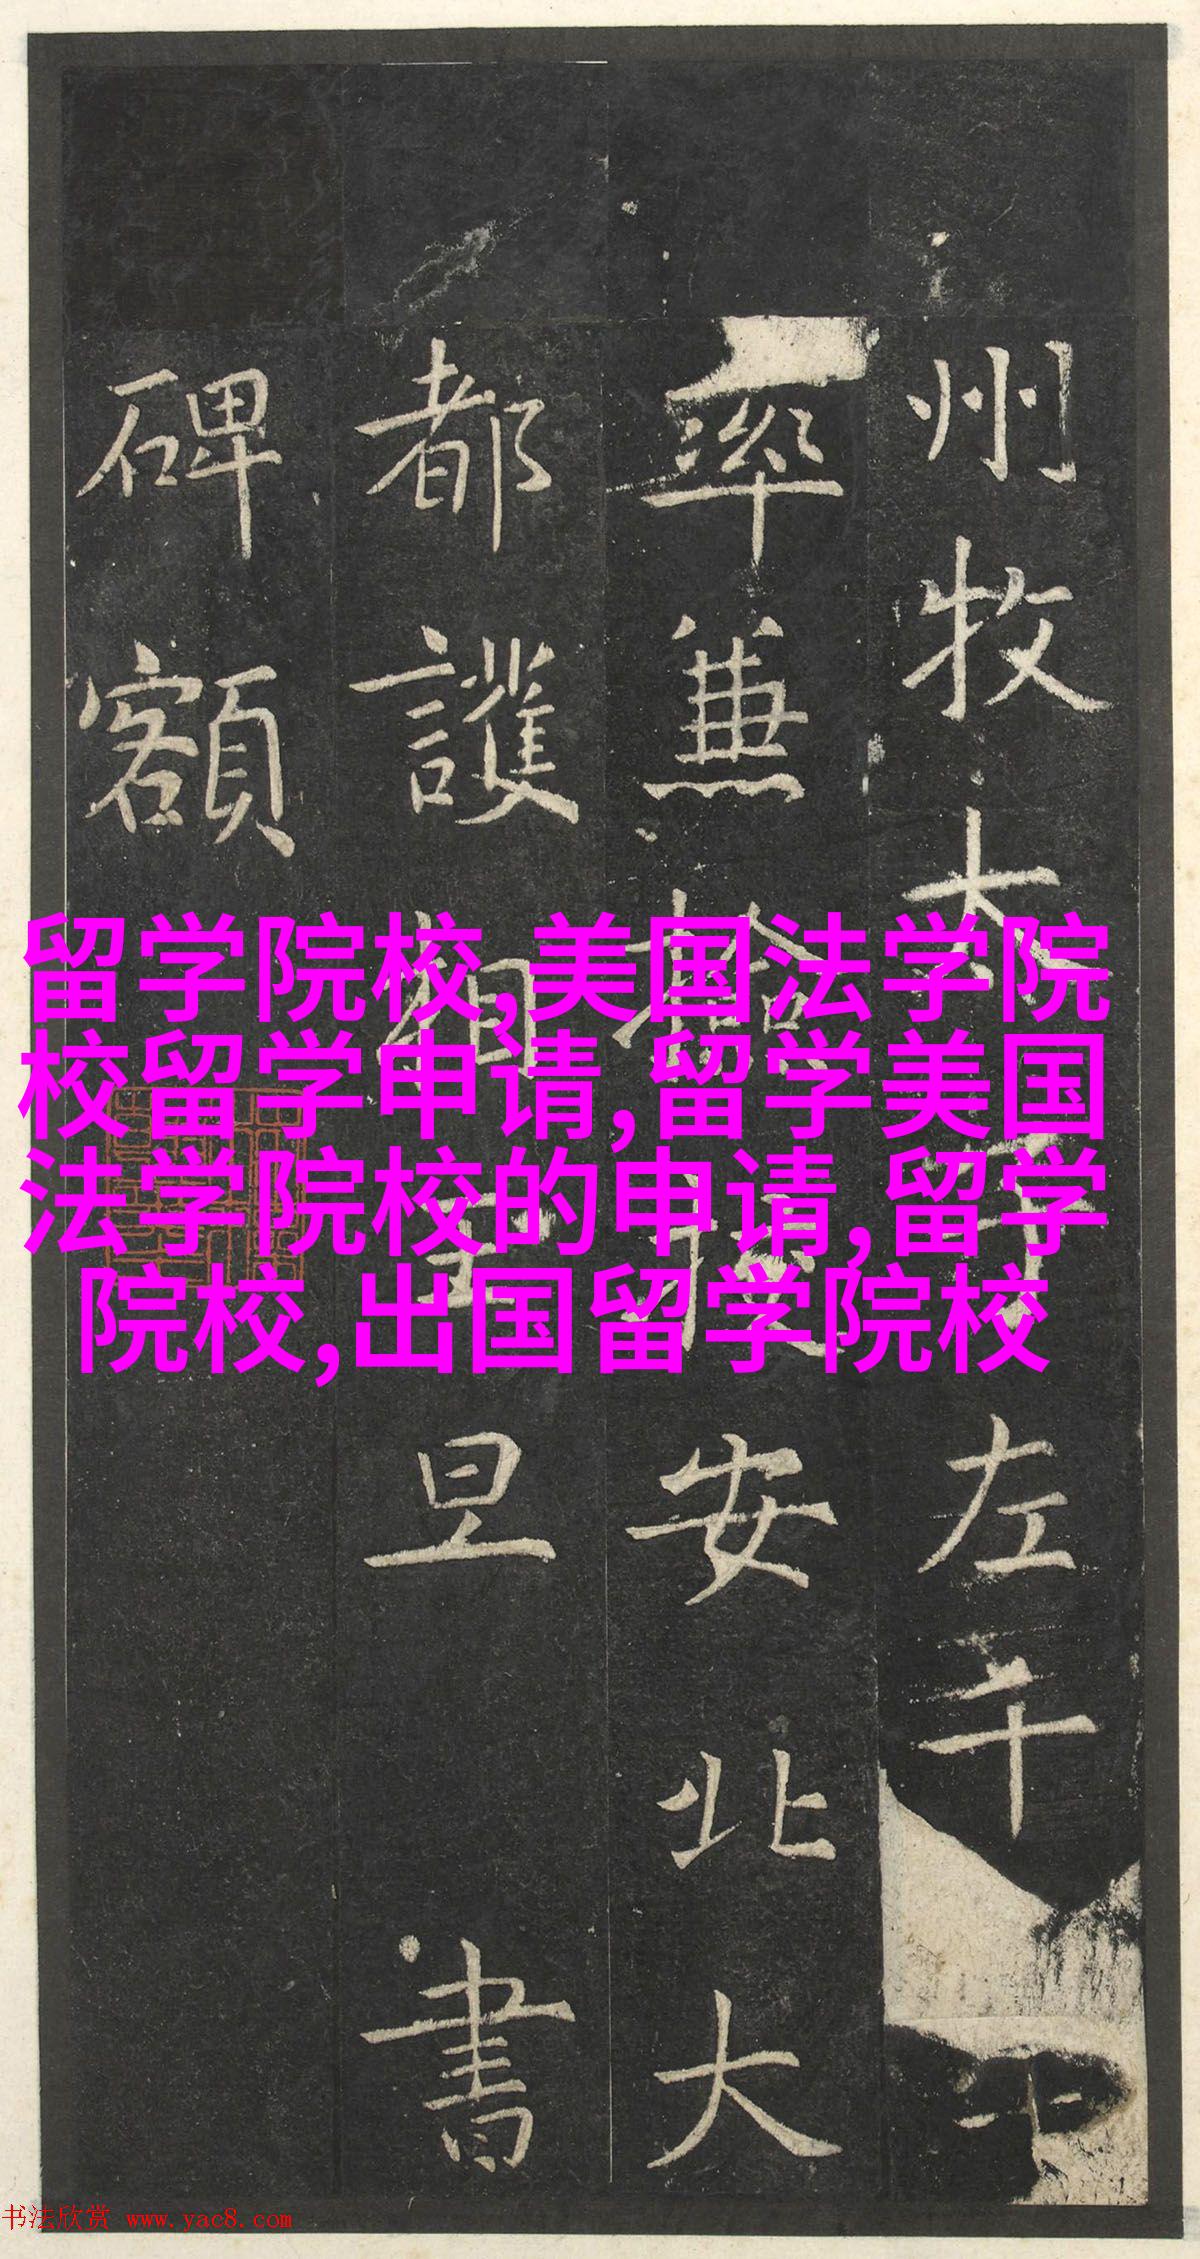 州牧大子左千
率兼檢校安北大
都護相王旦書
碑額
留学院校,美国法学院
校留学申请,留学美国
法学院校的申请,留学
院校,出国留学院校
书法欣赏 www.yac8.com